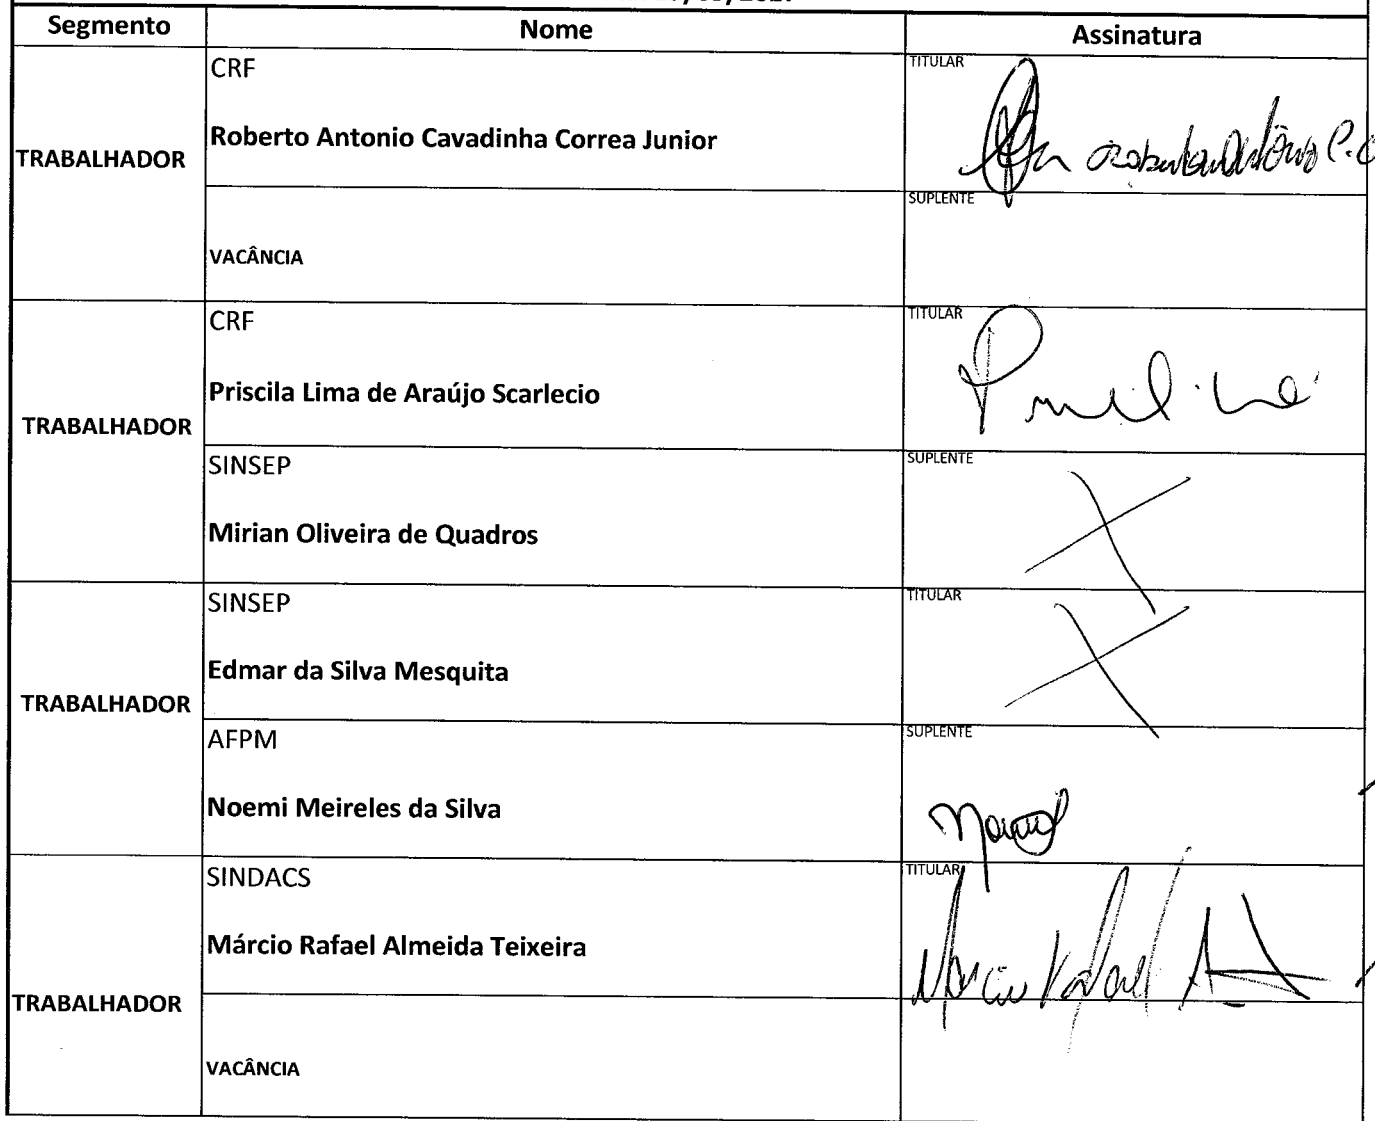 Segmento Nome Assinatura
TRABALHADOR
CRF
Roberto Antonio Cavadinha Correa Junior
TITULAR
VACÂNCIA
SUPLENTE
TRABALHADOR
CRF
Priscila Lima de Araújo Scarlecio
TITULAR
SINSEP
Mirian Oliveira de Quadros
SUPLENTE
TRABALHADOR
SINSEP
Edmar da Silva Mesquita
TITULAR
AFPM
Noemi Meireles da Silva
SUPLENTE
TRABALHADOR
SINDACS
Márcio Rafael Almeida Teixeira
TITULAR
Márcio Rafael
VACÂNCIA